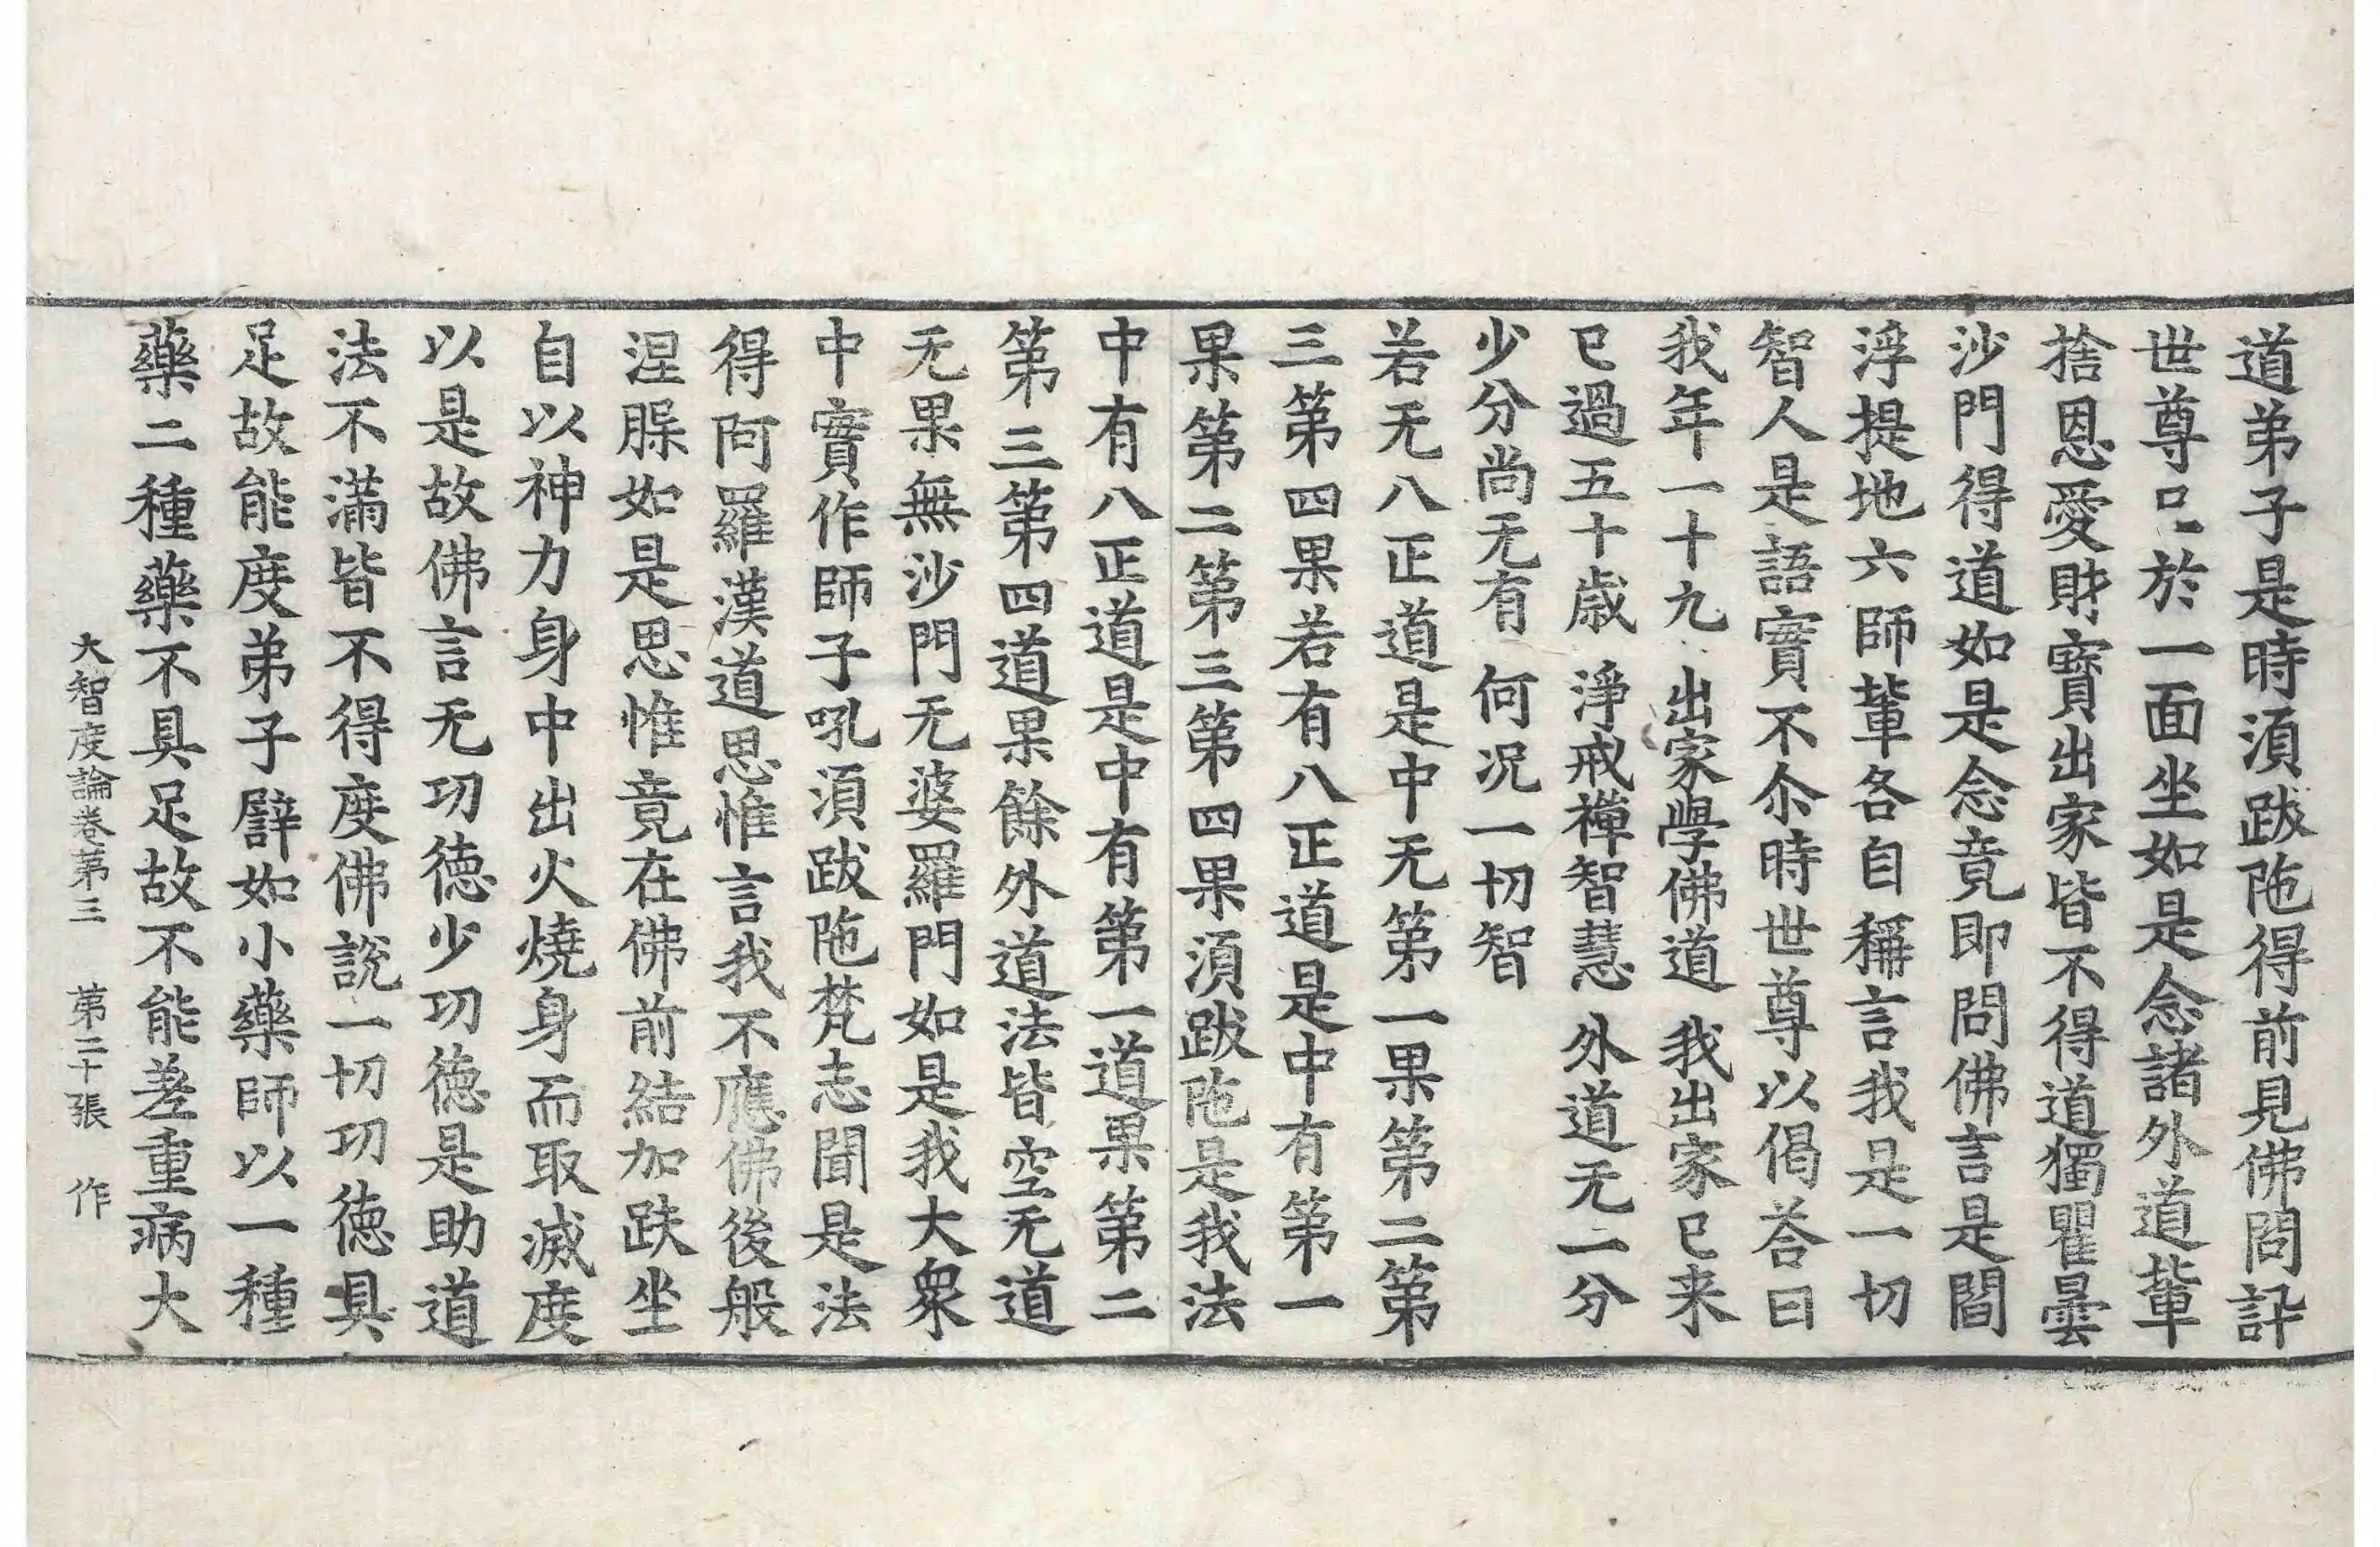 道弟子是時湏跋陁得前見佛問訊
世尊已於一面坐如是念諸外道軰
捨恩愛財寶出家皆不得道獨瞿曇
沙門得道如是念竟即問佛言是閻
浮提地六師軰各自稱言我是一切
智人是語實不尒時世尊以偈荅曰
我年一十九 出家學佛道 我出家已来
已過五十歳 淨戒禪智慧 外道无一分
少分尚无有 何况一切智
若无八正道是中无第一果第二第
三第四果若有八正道是中有第一
果第二第三第四果湏跋陁是我法
中有八正道是中有第一道果第二
第三第四道果餘外道法皆空无道
无果無沙門无婆羅門如是我大衆
中實作師子吼湏跋陁梵志聞是法
得阿羅漢道思惟言我不應佛後般
涅脲如是思惟竟在佛前結加趺坐
自以神力身中出火燒身而取滅度
以是故佛言无功徳少功徳是助道
法不滿皆不得度佛說一切功徳具
足故能度弟子譬如小藥師以一種
藥二種藥不具足故不能差重病大
大智度論卷第三 第二十張 作